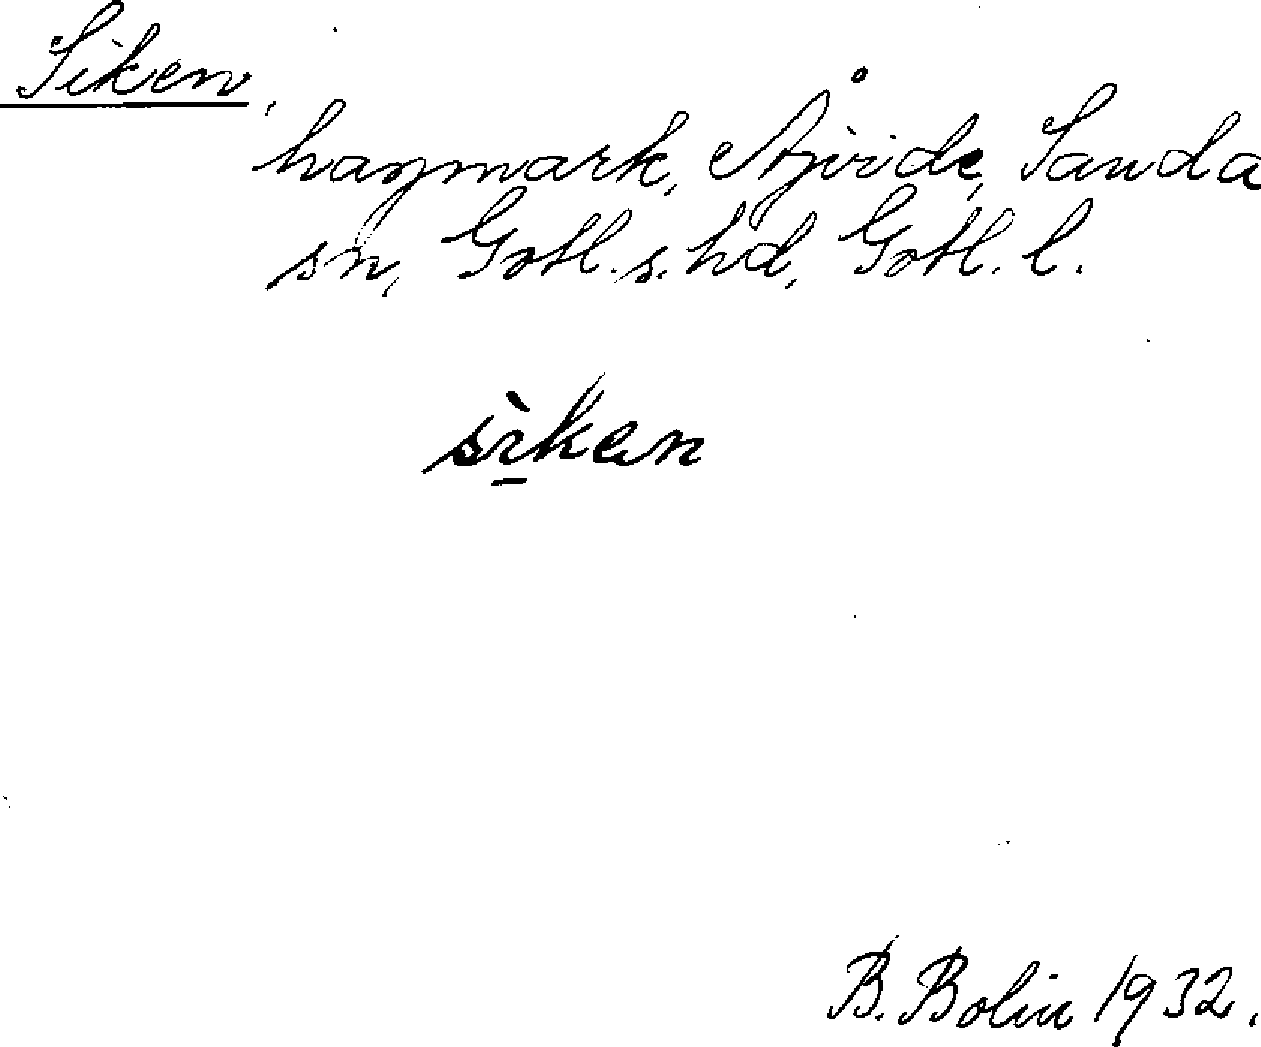 Siken,
hagmark, Ajvide, Sanda
sn, Gotl. s. hd, Gotl. l.
sìken
B. Bolin 1932.